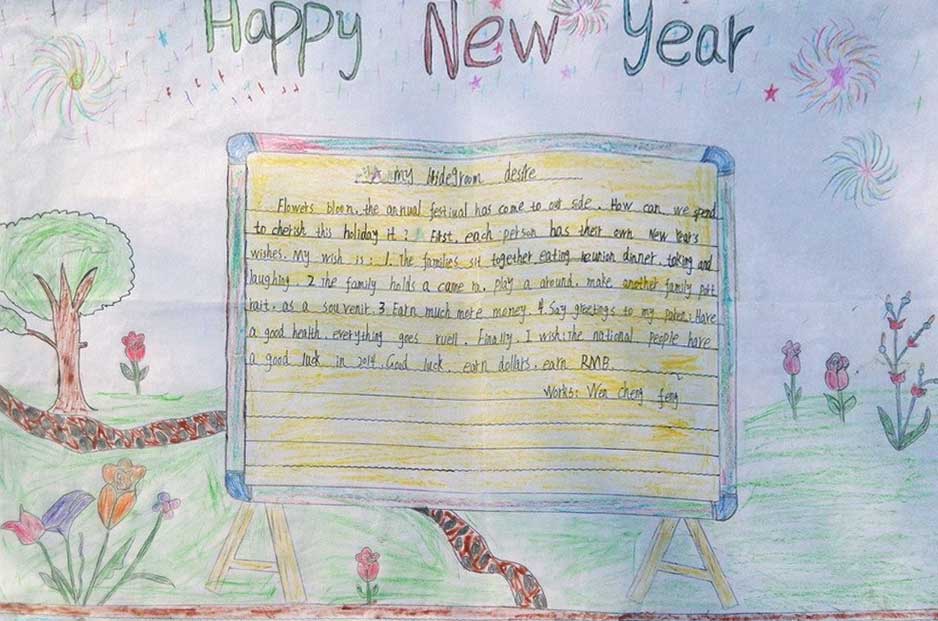 Happy New Year
my bridegroom desire
Flowers bloom, the annual festival has come to our side. How can we spend
to cherish this holiday it? First, each person has their own New Year's
wishes. My wish is: 1. The families sit together eating reunion dinner, taking and
laughing. 2 The family holds a came ra, play a around, make another family port
rait, as a souvenir. 3 Earn much more money. 4 Say greetings to my : Have
a good health, everything goes ruell. Finally, I wish: The national people have
a good luck in 2014. Good luck, earn dollars, earn RMB.
Works: Wen cheng feng